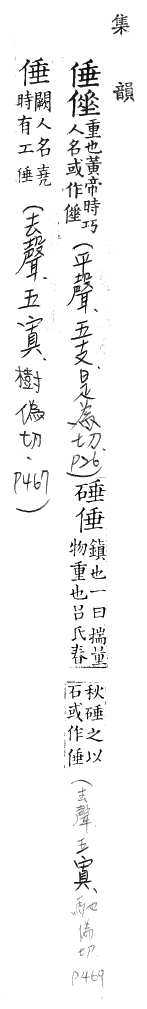 集韻
倕𠊎重也黃帝時巧人名或作𠊎(平聲、五支、是為切、P26)硾倕鎮也一曰揣量物重也呂氏春秋硾之以石或作倕(去聲、五寘、馳偽切、P469
倕闕人名堯時有工倕(去聲、五寘、樹偽切、P467)